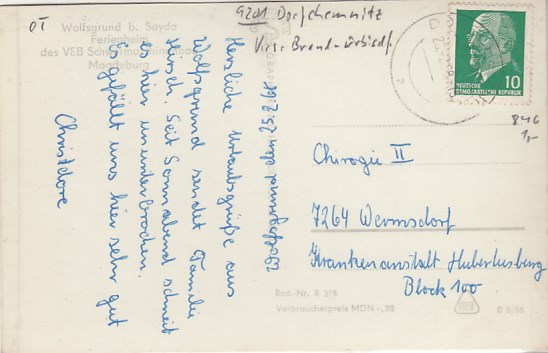 OT
9201 Dorfchemnitz
Krs. Brand-Erbisdf.
Wolfsgrund b. Sayda
Ferienheim
des VEB Schwermaschinenbau
Magdeburg
DEUTSCHE
DEMOKRATISCHE REPUBLIK
10
846
1,-
Herzliche Urlaubsgrüße aus
Wolfsgrund sendet Familie
Hirsch. Seit Sonnabend schneit
es hier ununterbrochen.
Es gefällt uns hier sehr gut
Christdore
Chirogie II
7264 Wermsdorf
Krankenanstalt Hubertusburg
Block 100
Best-Nr. R 378
Verbraucherpreis MDN -,20